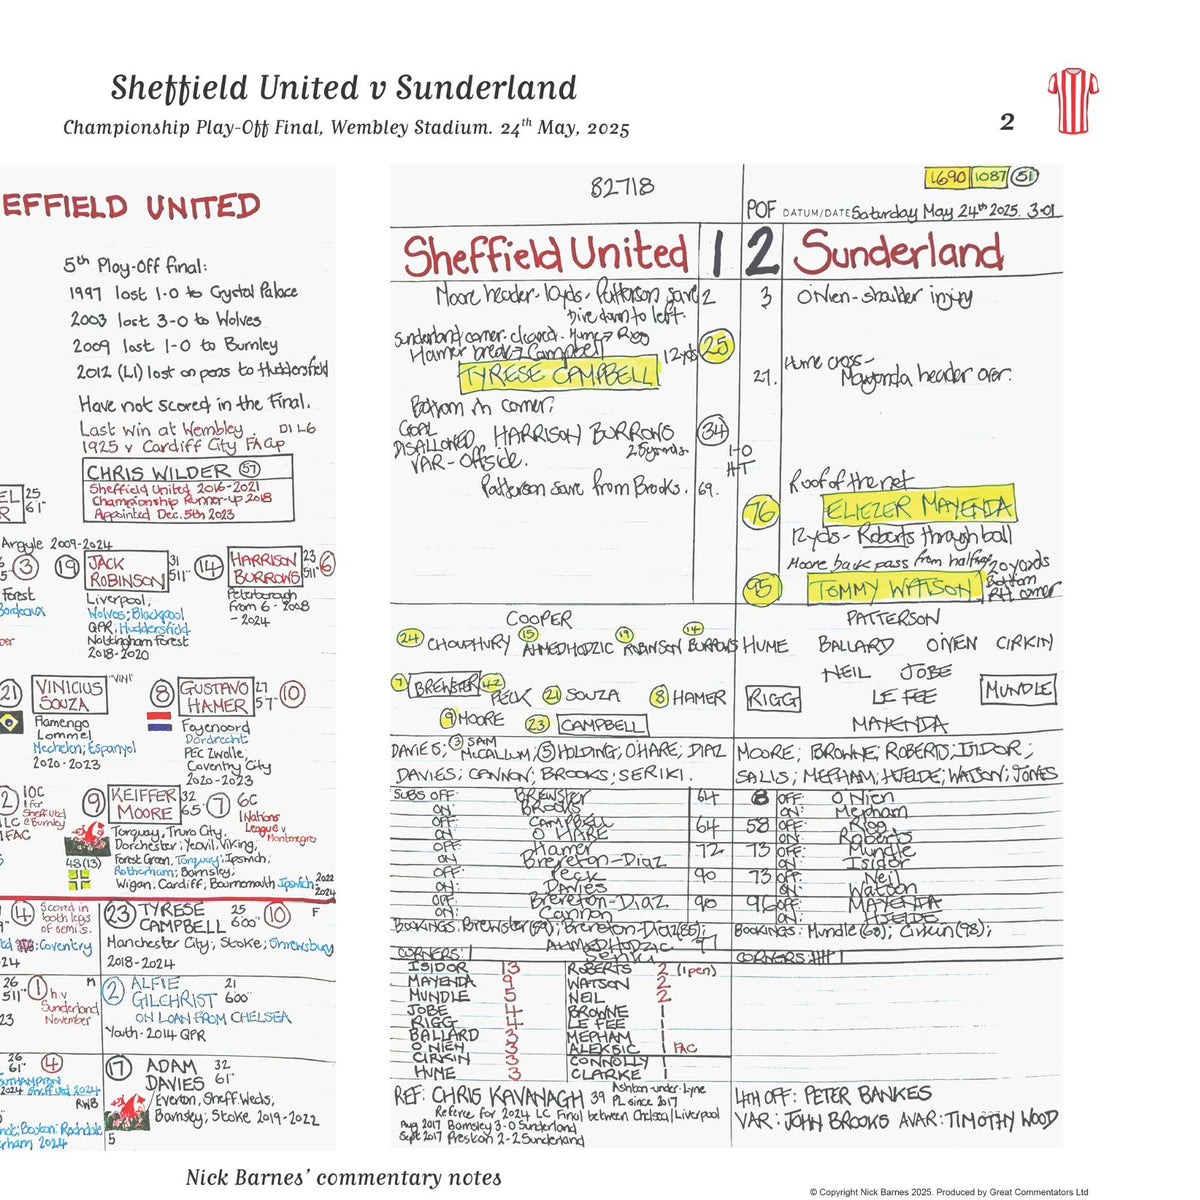 Sheffield United v Sunderland
Championship Play-Off Final, Wembley Stadium. 24th May, 2025
2
EFFIELD UNITED
5th Play-Off final:
1997 lost 1-0 to Crystal Palace
2003 lost 3-0 to Wolves
2009 lost 1-0 to Burnley
2012 (L1) lost on pens to Huddersfield
Have not scored in the final.
Last win at Wembley. D1 L6
1925 v Cardiff City FA Cup
CHRIS WILDER 57
Sheffield United 2016-2021
Championship Runner-up 2018
Appointed Dec. 5th 2023
EL 25
R 61"
Argyle 2009-2024
3
19 JACK ROBINSON 31 511"
Liverpool;
Wolves; Blackpool
QPR, Huddersfield
Nottingham Forest
2018-2020
14 HARRISON BURROWS 23 511" 6
Peterborough
from 6-2018
-2024
Forest
Bordeaux
21 VINICIUS SOUZA "VINI"
Flamengo
Lommel
Mechelen; Espanyol
2020-2023
8 GUSTAVO HAMER 27 57" 10
Feyenoord
Dordrecht
PEC Zwolle,
Coventry City
2020-2023
2 10C
1 for
Sheff Utd
v Burnley
1LC
1FAC
9 KEIFFER MOORE 32 65" 7
6C
1 Nations
League v
Montenegro
48(13)
Torquay, Truro City,
Dorchester; Yeovil; Viking,
Forest Green, Torquay; Ipswich;
Rotherham; Barnsley;
Wigan; Cardiff; Bournemouth Ipswich; 2022
2024
4 Scored in
both legs
of semi's.
Coventry
23 TYRESE CAMPBELL 25 600" 10 F
Manchester City; Stoke; Shrewsbury
2018-2024
26
511" 1 h.v
Sunderland
November
M
2 ALFIE GILCHRIST 21 600"
ON LOAN FROM CHELSEA
Youth-2014 QPR
26
61" 4
SOUTHAMPTON
2024 Sheff Utd 2024
RWB
Boston; Rochdale
2024
17 ADAM DAVIES 32 61"
Everton, Sheff Weds,
Barnsley; Stoke 2019-2022
5
82718
1690 1087 51
POF DATUM/DATE Saturday May 24th 2025. 3.01
Sheffield United 1 2 Sunderland
Moore header-10yds-Patterson save 2
Dive down to left.
3 O'Nien-shoulder injury
Sunderland corner. cleared. Hume→Rigg
Hamer break→Campbell 12yds 25
TYRESE CAMPBELL
Bottom rh corner;
27. Hume cross-
Mayenda header over.
GOAL
DISALLOWED HARRISON BURROWS 34
VAR-Offside. 25yards.
1-0
H/T
Patterson save from Brooks. 69.
Roof of the net
76 ELIEZER MAYENDA
12yds-Roberts through ball
Moore back pass from halfway 20 yards
95 TOMMY WATSON Bottom
RH corner
COOPER
24 CHOUDHURY 15 AHMEDHODZIC 19 ROBINSON 14 BURROWS
7 BREWSTER 42 PECK 21 SOUZA 8 HAMER
9 MOORE 23 CAMPBELL
PATTERSON
HUME BALLARD O'NIEN CIRKIN
NEIL JOBE
RIGG LE FEE MUNDLE
MAYENDA
DAVIES; 3 SAM McCALLUM, 5 HOLDING, O'HARE; DIAZ
DAVIES; CANNON; BROOKS; SERIKI.
MOORE; BROWNE; ROBERTS; ISIDOR;
SALIS; MEPHAM; HJELDE; WATSON; JONES
SUBS OFF: BREWSTER 64
ON: BROOKS
OFF: CAMPBELL 64
ON O'HARE
OFF: Hamer 72
ON Brereton-Diaz
OFF: Peck 90
ON: DAVIES
OFF: Brereton-Diaz 90
ON: Cannon
8 OFF: O'Nien
ON: Mepham
58 OFF: Rigg
ON: Roberts
73 OFF: Mundle
ON: Isidor
73 OFF: Neil
ON: Watson
96 OFF: MAYENDA
ON: HJELDE
BOOKINGS: Brewster(59); Brereton-Diaz(85);
AHMEDHODZIC 97
BOOKINGS: Mundle(60); Cirkin(98);
CORNERS: I
CORNERS:
ISIDOR 13
MAYENDA 9
MUNDLE 5
JOBE 4
RIGG 4
BALLARD 3
O'NIEN 3
CIRKIN 3
HUME 3
ROBERTS 2 (1pen)
WATSON 2
NEIL 2
BROWNE 1
LE FEE 1
MEPHAM 1
ALEKSIC 1 FAC
CONNOLLY 1
CLARKE 1
REF: CHRIS KAVANAGH 39 Ashton-under-Lyne
PL since 2017
Referee for 2024 LC Final between Chelsea/Liverpool
Aug 2017 Barnsley 3-0 Sunderland
Sept 2017 Preston 2-2 Sunderland
4TH OFF: PETER BANKES
VAR: JOHN BROOKS AVAR: TIMOTHY WOOD
Nick Barnes' commentary notes
© Copyright Nick Barnes 2025. Produced by Great Commentators Ltd